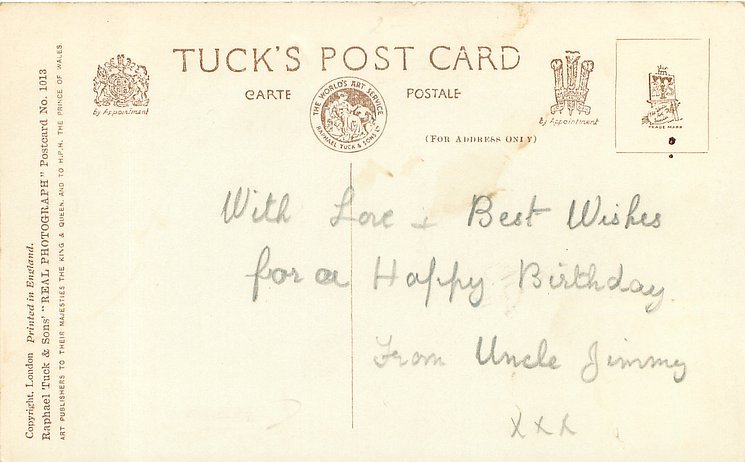 TUCK'S POST CARD
CARTE POSTALE
by Appointment
THE WORLD'S ART SERVICE
RAPHAEL TUCK & SONS LTD
by Appointment
TRADE MARK
(FOR ADDRESS ONLY)
With Love + Best Wishes
for a Happy Birthday
From Uncle Jimmy
xxx
Copyright, London Printed in England.
Raphael Tuck & Sons' "REAL PHOTOGRAPH" Postcard No. 1013
ART PUBLISHERS TO THEIR MAJESTIES THE KING & QUEEN, AND TO H.R.H. THE PRINCE OF WALES.